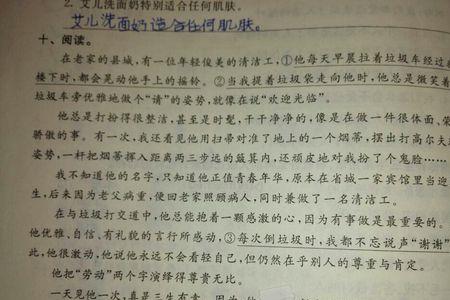 2. 艾儿洗面奶特别适合任何肌肤。
艾儿洗面奶适合任何肌肤。
十、阅读。
在老家的县城,有一位年轻俊美的清洁工,①他每天早晨拉着垃圾车经过
楼下时,都会晃动他手上的摇铃。②当我提着垃圾袋走向他时,他总是微笑着
垃圾车旁优雅地做个“请”的姿势,就像在说“欢迎光临”。
他总是打扮得很整洁,甚至是时髦,干干净净的,像是在做一件很体面,荣
骄傲的事。有一次,我还看见他用扫帚对准了地上的一个烟蒂,摆出打高尔夫
姿势,一杆把烟蒂挥入距离两三步远的簸箕内,还顽皮地对我扮了个鬼脸……
我不知道他的名字,只知道他正值青春年华,原本在省城一家宾馆里当迎
生,后来因为老父病重,便回老家照顾病人,同时兼做了一名清洁工。
在与垃圾打交道中,他总能抱着一颗感激的心,因为有事做是最重要的。
他优雅、自信、有礼貌的言行所感动,③每次倒垃圾时,我都不忘说声“谢谢”
此,他很激动,他说他永远不会看轻自己,但仍然在乎别人的尊重与肯定。
他把“劳动”两个字演绎得尊贵无比。
一天见他一次,真是三生有幸,因为